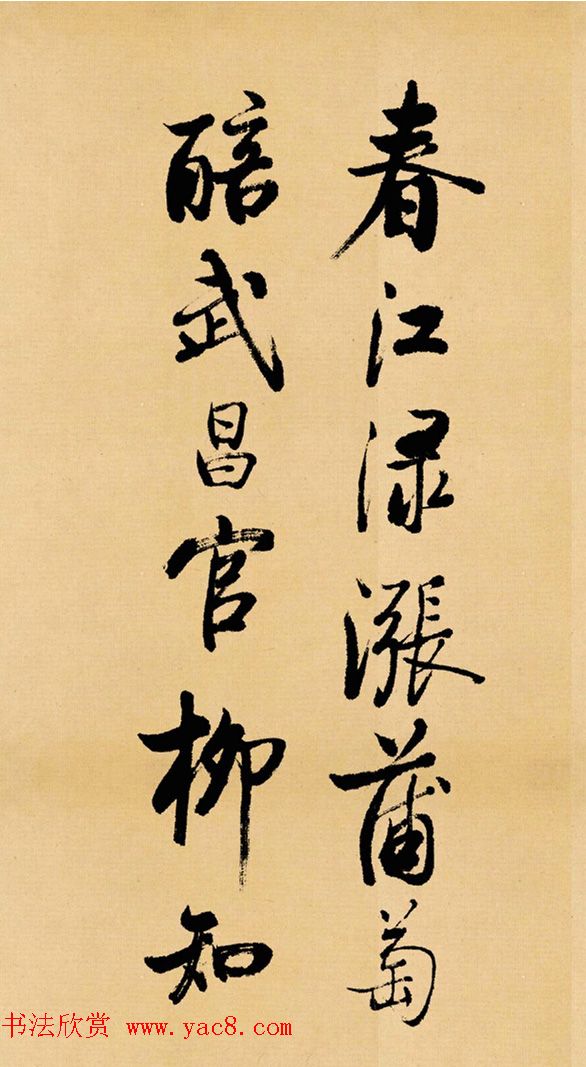 春江渌漲蒲萄
醅武昌官柳知
书法欣赏 www.yac8.com